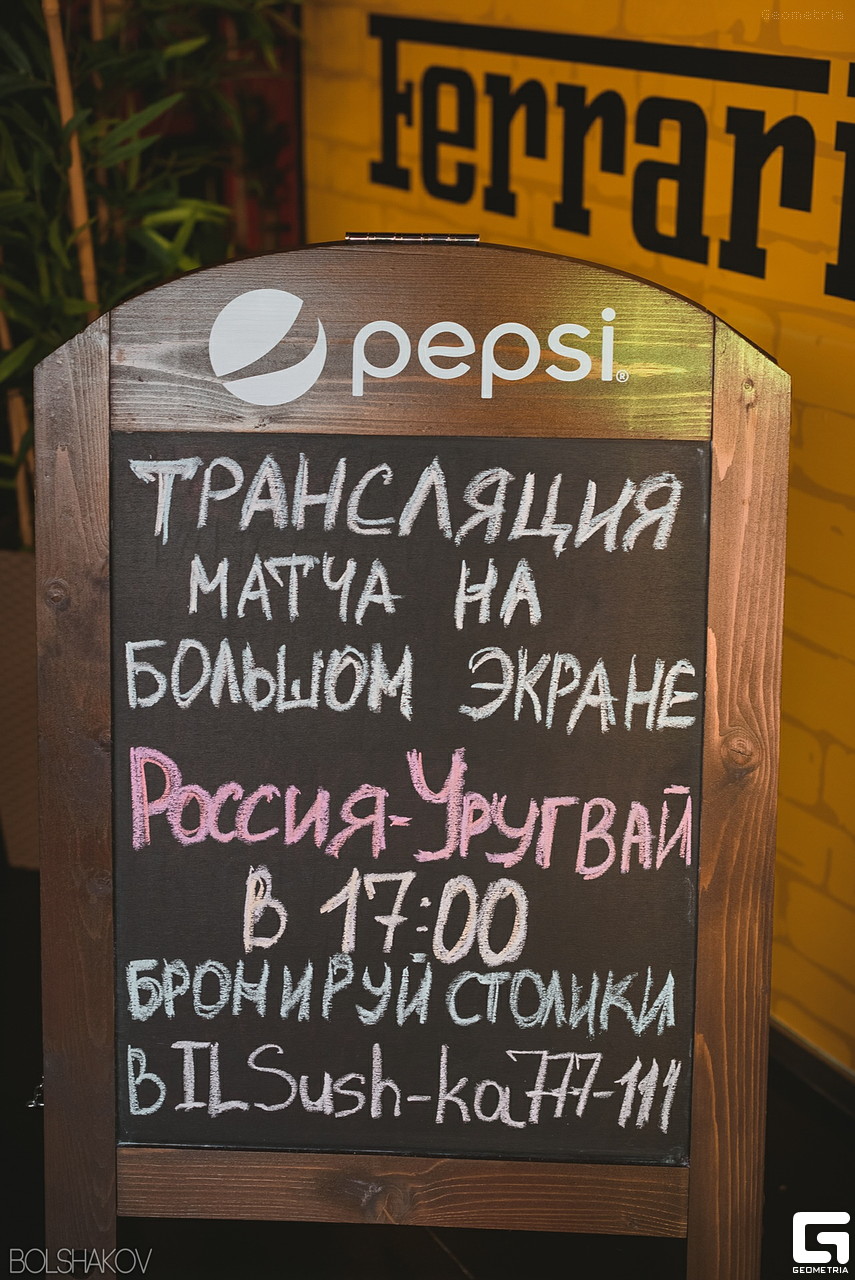 Geometria
Ferrari
pepsi®
ТРАНСЛЯЦИЯ
МАТЧА НА
БОЛЬШОМ ЭКРАНЕ
РОССИЯ-УРУГВАЙ
В 17:00
БРОНИРУЙ СТОЛИКИ
В IL Sush-ka 777-111
BOLSHAKOV
GEOMETRIA